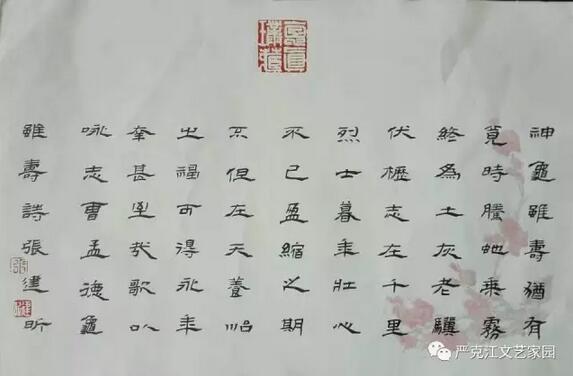 神龜雖壽猶有
竟時騰虵乘霧
終為土灰老驥
伏櫪志在千里
烈士暮年壯心
不已盈縮之期
不但在天養怡
之福可得永年
幸甚至哉歌以
咏志曹孟德龜
雖壽詩張建昕
严克江文艺家园